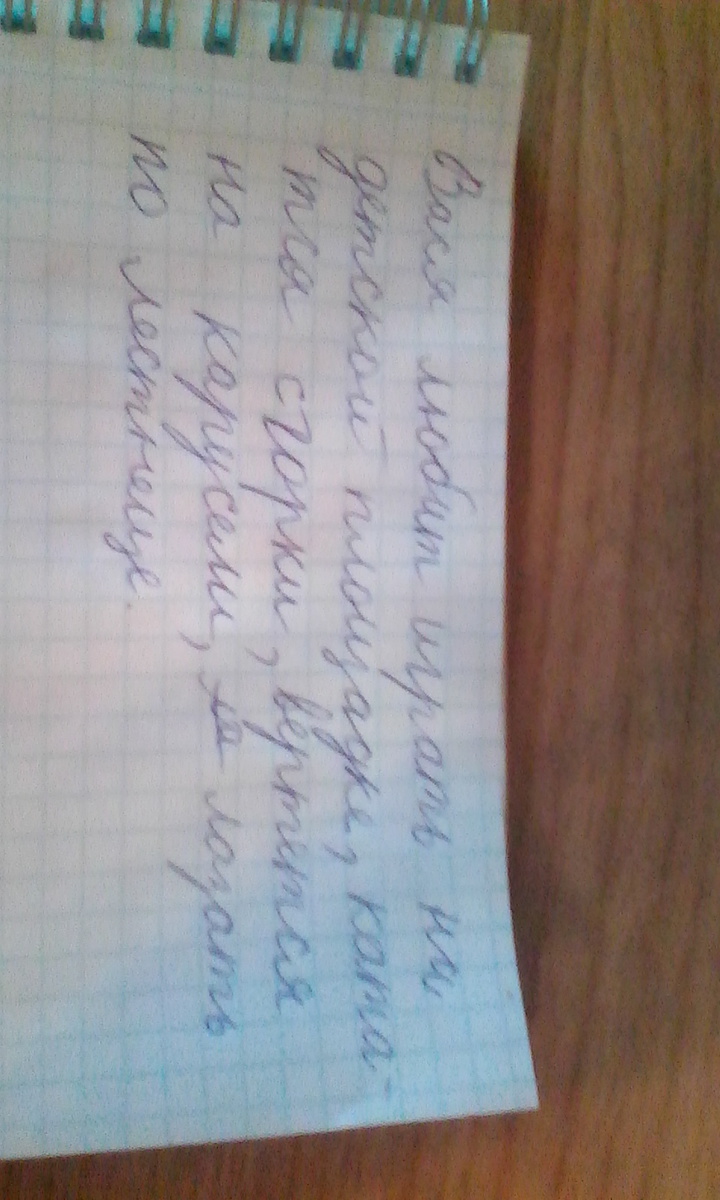 Вася любит играть на
детской площадке, ката-
тся сгорки, вертется
на карусели, ла лазать
по лестнеце.